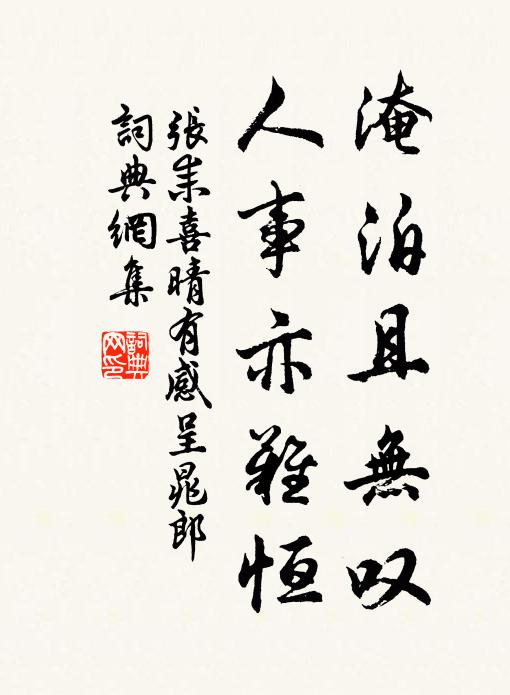 淹泊且無叹
人事亦難恒
張耒喜晴有感呈晁郎
詞典網集
詞典
网印